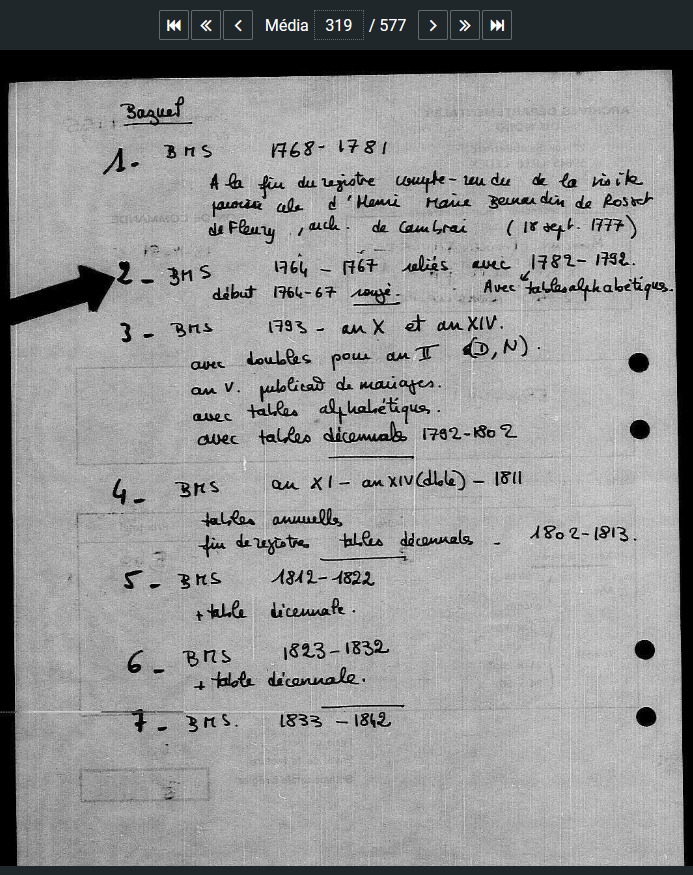 Média 319 / 577
Bazuel
1. BMS 1768-1781
A la fin du registre compte-rendu de la visite
d'Henri Marie Bernardin de Rosset
de Fleury, arch. de Cambrai (18 sept. 1777)
2 - BMS 1764 - 1767 reliés avec 1782-1792.
début 1764-67 rongé. Avec tables alphabétiques.
3 - BMS 1793 - an X et an XIV.
avec doubles pour an II (D, N).
an V. publicat de mariages.
avec tables alphabétiques.
avec tables décennales 1792-1802
4 - BMS an XI - an XIV (dble) - 1811
tables annuelles
fin de registre tables décennales - 1802-1813.
5 - BMS 1812-1822
+ table décennale.
6 - BMS 1823-1832
+ table décennale.
7 - BMS. 1833 - 1842